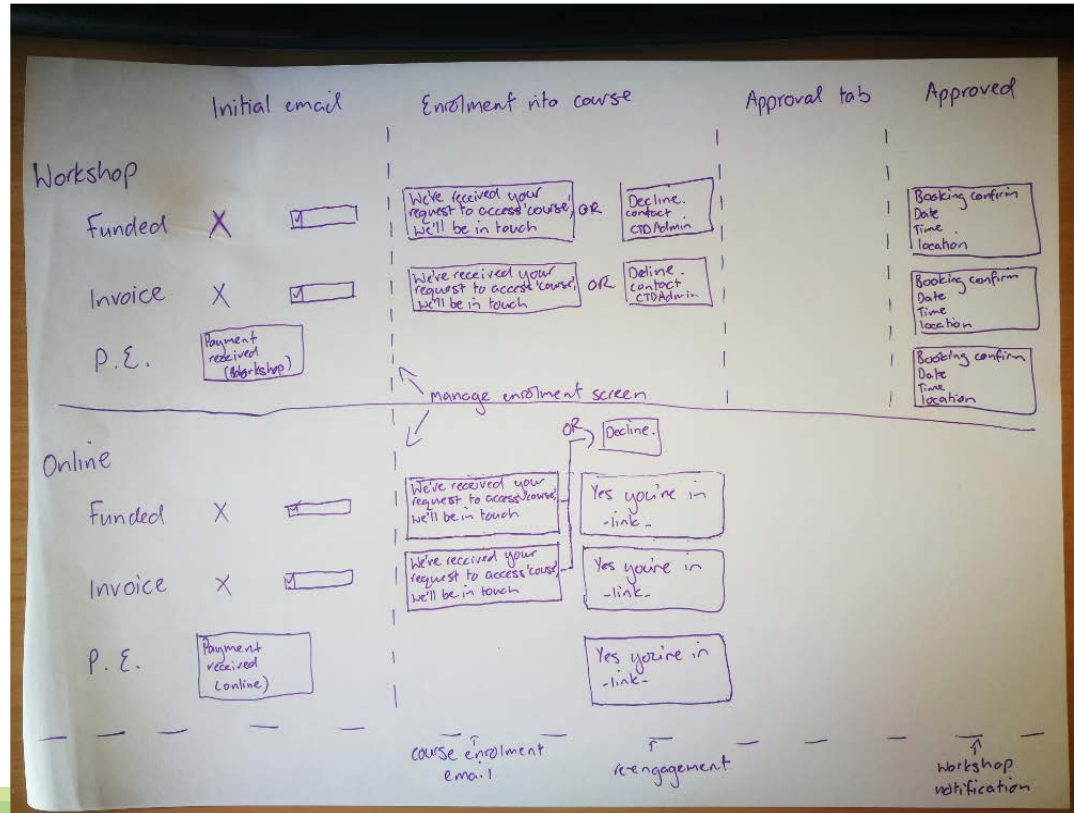 Initial email
Enrolment into course
Approval tab
Approved
Workshop
Funded X
We've received your
request to access 'course',
we'll be in touch
OR
Decline.
contact
CTDAdmin
Booking confirm
Date
Time.
location
Invoice X
We've received your
request to access 'course',
we'll be in touch
OR
Deline.
contact
CTDAdmin
Booking confirm
Date
Time
location
P.E.
Payment
received
(Workshop)
Booking confirm
Date
Time
location
manage enrolment screen
Online
OR
Decline.
Funded X
We've received your
request to access 'course',
we'll be in touch
Yes you're in
-link-
Invoice X
We've received your
request to access 'course',
we'll be in touch
Yes you're in
-link-
P.E.
Payment
received
(online)
Yes you're in
-link-
course enrolment
email
re-engagement
Workshop
notification